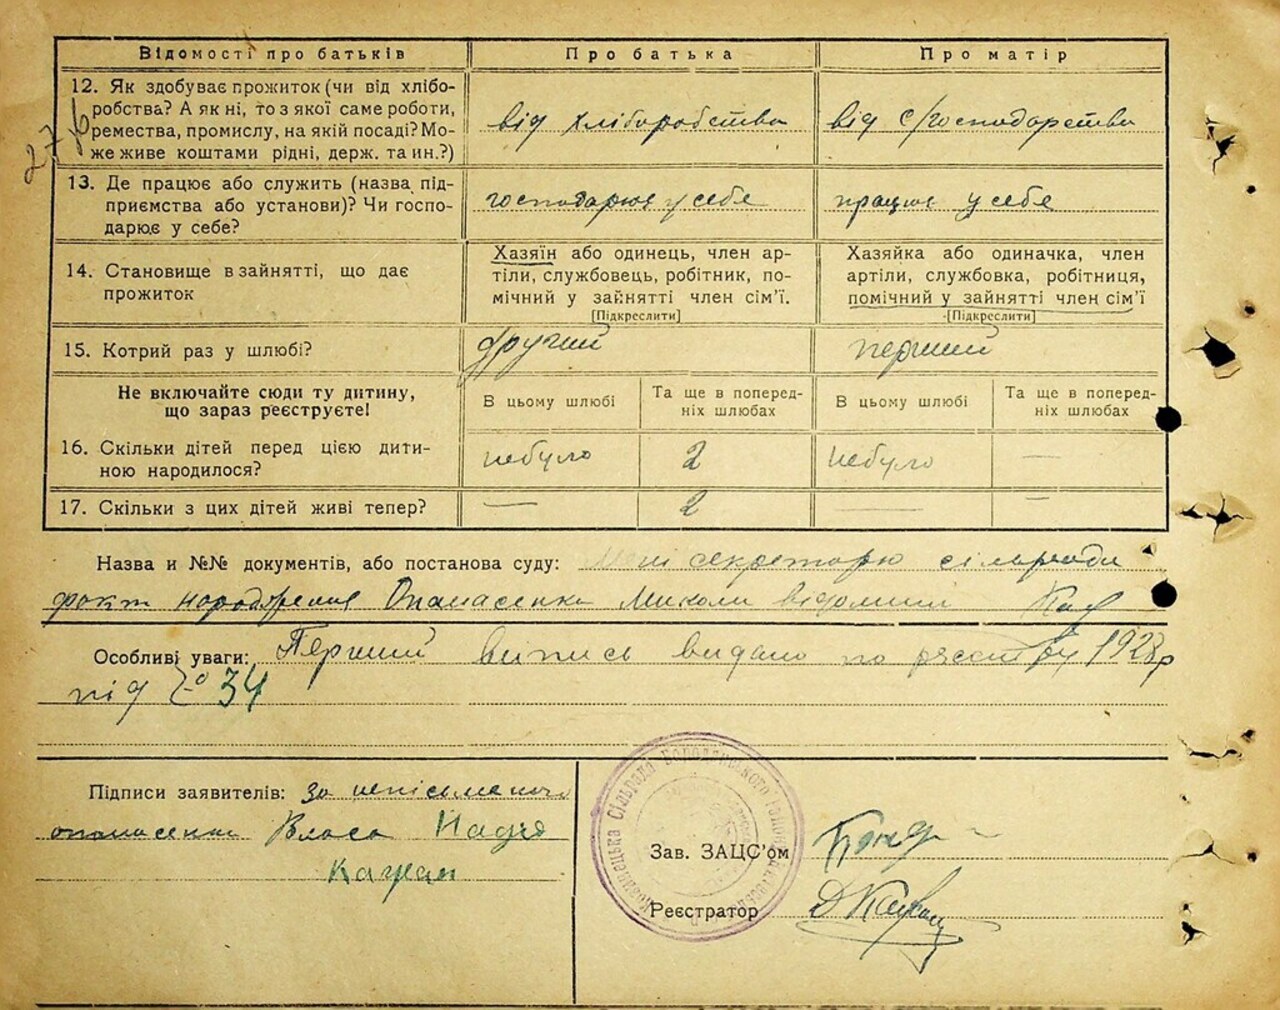 Відомості про батьків
Про батька
Про матір
276
12. Як здобуває прожиток (чи від хлібо-
робства? А як ні, то з якої саме роботи,
ремества, промислу, на якій посаді? Мо-
же живе коштами рідні, держ. та ин.?)
від хліборобства
від с/господарства
13. Де працює або служить (назва під-
приємства або установи)? Чи госпо-
дарює у себе?
господарює у себе
працює у себе
14. Становище в зайнятті, що дає
прожиток
Хазяїн або одинець, член ар-
тіли, службовець, робітник, по-
мічний у зайнятті член сім’ї.
[Підкреслити]
Хазяйка або одиначка, член
артіли, службовка, робітниця,
помічний у зайнятті член сім’ї
[Підкреслити]
15. Котрий раз у шлюбі?
другий
перший
Не включайте сюди ту дитину,
що зараз реєструєте!
В цьому шлюбі
Та ще в поперед-
ніх шлюбах
В цьому шлюбі
Та ще в поперед-
ніх шлюбах
16. Скільки дітей перед цією дити-
ною народилося?
небуло
2
небуло
—
17. Скільки з цих дітей живі тепер?
—
2
—
—
Назва и №№ документів, або постанова суду: Мені секретарю сільради
факт народження Опанасенка Миколи відомий
Особливі уваги: Перший випись видано по реєстру 1928 р
під № 34
Підписи заявителів: за неписьменого
опанасенка Власа
Зав. ЗАЦС’ом
Реєстратор
Сільрада Бородянського